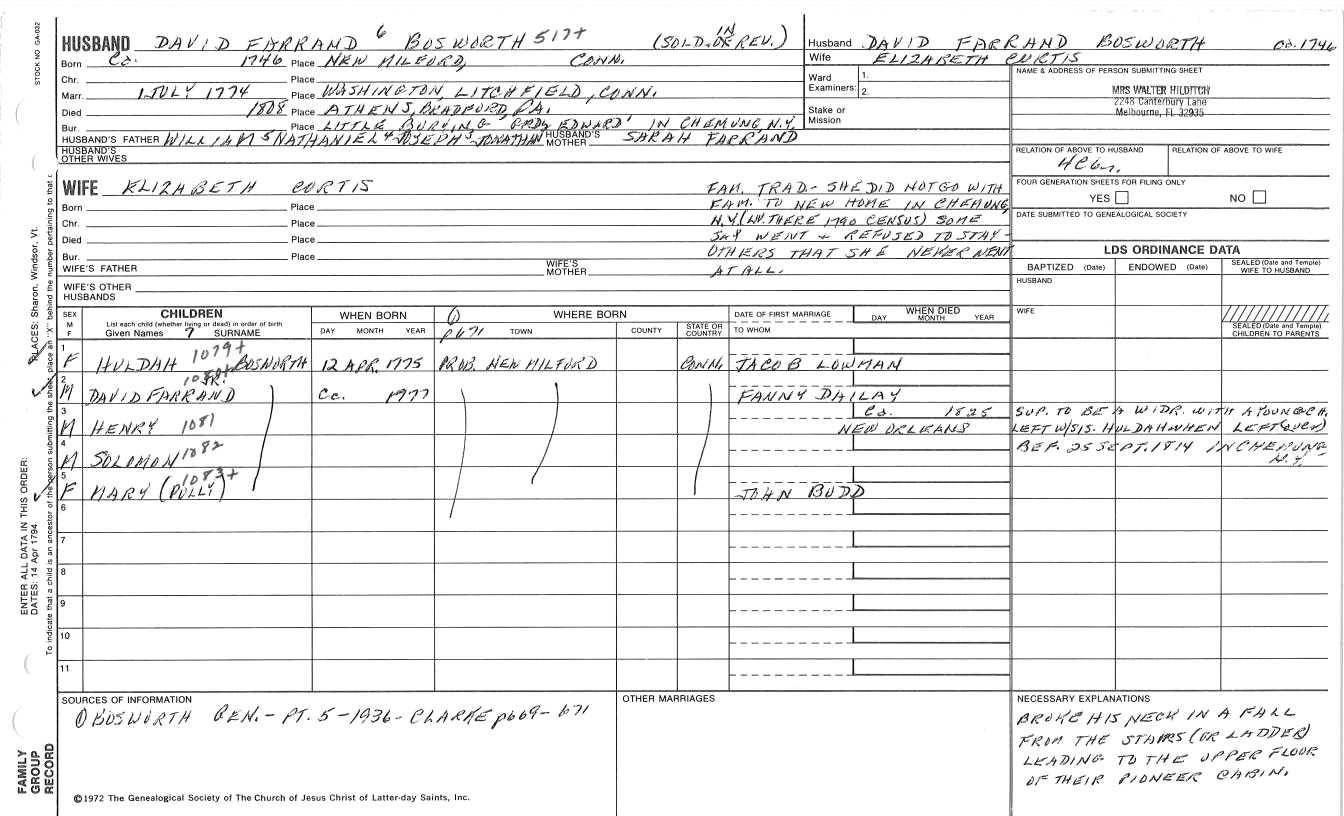 STOCK NO. GA-032
HUSBAND DAVID FARRAND 6 BOSWORTH 517+ (SOLD. IN REV.)
Born Ca. 1746 Place NEW MILFORD, CONN.
Chr. Place
Marr. 1 JULY 1774 Place WASHINGTON, LITCHFIELD, CONN.
Died 1808 Place ATHENS, BRADFORD, PA.
Bur. Place LITTLE BURYING GRDS EDWARD' IN CHEMUNG N.Y.
HUSBAND'S FATHER WILLIAM 5 NATHANIEL 4 JOSEPH 3 JONATHAN HUSBAND'S MOTHER SARAH FARRAND
HUSBAND'S OTHER WIVES
Husband DAVID FARRAND BOSWORTH Ca. 1746
Wife ELIZABETH CURTIS
Ward Examiners: 1.
2.
Stake or Mission
NAME & ADDRESS OF PERSON SUBMITTING SHEET
MRS WALTER HILDITCH
2248 Canterbury Lane
Melbourne, FL 32935
RELATION OF ABOVE TO HUSBAND RELATION OF ABOVE TO WIFE
FOUR GENERATION SHEETS FOR FILING ONLY
YES NO
DATE SUBMITTED TO GENEALOGICAL SOCIETY
WIFE ELIZABETH CURTIS
Born Place
Chr. Place
Died Place
Bur. Place
WIFE'S FATHER WIFE'S MOTHER
WIFE'S OTHER HUSBANDS
FAM. TRAD- SHE DID NOT GO WITH
FAM. TO NEW HOME IN CHEMUNG,
N.Y. (LIV. THERE 1790 CENSUS) SOME
SAY WENT + REFUSED TO STAY-
OTHERS THAT SHE NEVER WENT
AT ALL.
LDS ORDINANCE DATA
BAPTIZED (Date) ENDOWED (Date) SEALED (Date and Temple) WIFE TO HUSBAND
HUSBAND
WIFE
SEALED (Date and Temple) CHILDREN TO PARENTS
SEX M F CHILDREN
List each child (whether living or dead) in order of birth
Given Names 7 SURNAME
WHEN BORN
DAY MONTH YEAR
① p671
WHERE BORN
TOWN COUNTY STATE OR COUNTRY
DATE OF FIRST MARRIAGE
TO WHOM
WHEN DIED
DAY MONTH YEAR
1 F HULDAH 1079+ BOSWORTH 12 APR. 1775 PROB. NEW MILFORD CONN. JACOB LOWMAN
2 M DAVID FARRAND JR. 1080+ Ca. 1777 FANNY DAILAY
3 M HENRY 1081 Ca. 1825
NEW ORLEANS
SUP. TO BE A WIDR. WITH A YOUNG CH.
LEFT W/SIS. HULDAH WHEN LEFT
4 M SOLOMON 1082 BEF. 25 SEPT. 1814 IN CHEMUNG, N.Y.
5 F MARY (POLLY) 1083+ JOHN BUDD
6
7
8
9
10
11
SOURCES OF INFORMATION
① BOSWORTH GEN.- PT. 5-1936- CLARKE p669-671
OTHER MARRIAGES
NECESSARY EXPLANATIONS
BROKE HIS NECK IN A FALL
FROM THE STAIRS (OR LADDER)
LEADING TO THE UPPER FLOOR
OF THEIR PIONEER CABIN.
©1972 The Genealogical Society of The Church of Jesus Christ of Latter-day Saints, Inc.
FAMILY GROUP RECORD
ENTER ALL DATA IN THIS ORDER:
DATES: 14 Apr 1794
PLACES: Sharon, Windsor, Vt.
To indicate that a child is an ancestor of the person submitting the sheet, place an "X" behind the number pertaining to that